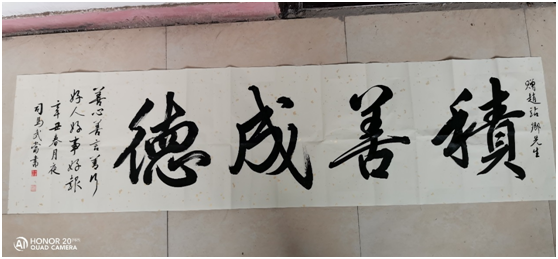 贈趙 先生
積善成德
善心善言善行
好人好事好報
辛丑春月夜
司馬武當書
HONOR 20
AI QUAD CAMERA